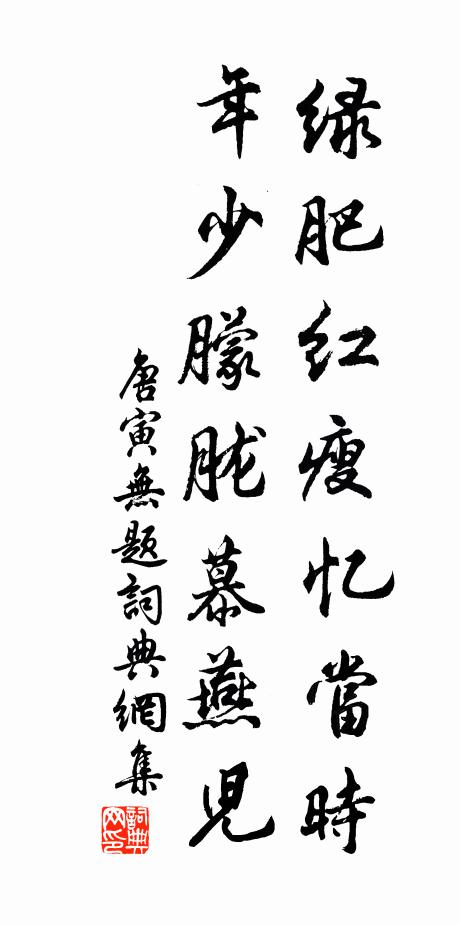 绿肥红瘦忆當時
年少朦胧慕燕児
唐寅無题詞典網集
詞典
网印